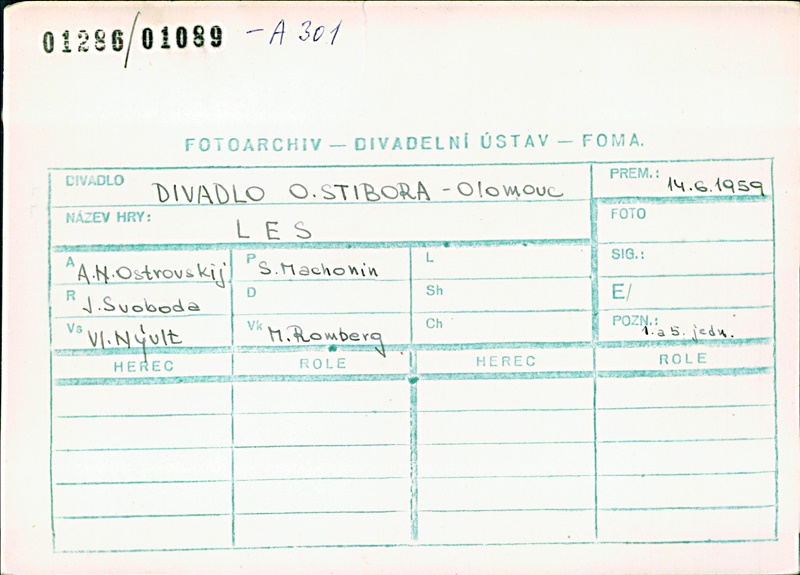 01286/01089 - A 301
FOTOARCHIV — DIVADELNÍ ÚSTAV — FOMA.
DIVADLO DIVADLO O.STIBORA - Olomouc PREM.: 14.6.1959
NÁZEV HRY: LES FOTO
A A.N.Ostrovskij P S.Machonin L SIG.:
R J.Svoboda D Sh E/
Vs Vl.Nývlt Vk M.Romberg Ch POZN.: 1. a 5. jedn.
HEREC ROLE HEREC ROLE